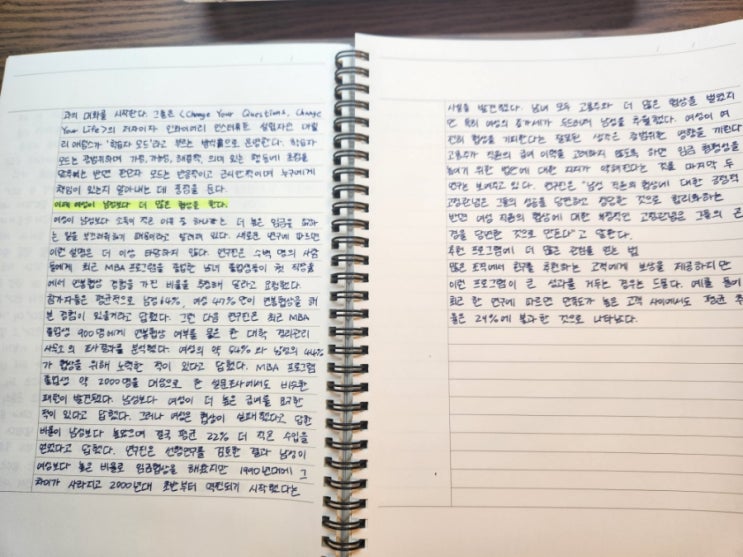 과의 대화를 시작한다. 그들은 <Change Your Questions, Change
Your Life>의 저자이자 인콰이어리 인스티튜트 설립자인 매릴
리 애덤스가 '학습자 모드'라고 부르는 방식으로 운영한다. 학습자
모드는 광범위하며 가능, 가능성, 해결책, 의미 있는 행동에 초점을
맞추는 반면 판단자 모드는 반응적이고 근시안적이며 누구에게
책임이 있는지 알아내는 데 중점을 둔다.
이제 여성이 남성보다 더 많은 협상을 한다.
여성이 남성보다 소득이 적은 이유 중 하나로는 더 높은 임금을 요구하
는 일을 부끄러워하기 때문이라고 알려져 있다. 새로운 연구에 따르면
이런 설명은 더 이상 타당하지 않다. 연구진은 수백 명의 사람
들에게 최근 MBA 프로그램을 졸업한 남녀 졸업생들이 첫 직장을
에서 연봉협상 경험을 가진 비율을 추정해 달라고 요청했다.
참가자들은 평균적으로 남성 64%, 여성 47%만이 연봉협상을 해
본 경험이 있을거라고 답했다. 그런 다음 연구진은 최근 MBA
졸업생 900명에게 연봉협상 여부를 물은 한 대학 경력관리
사무소의 조사결과를 분석했다. 여성의 약 54%와 남성의 44%
가 협상을 위해 노력한 적이 있다고 답했다. MBA 프로그램
졸업생 약 2000명을 대상으로 한 설문조사에서도 비슷한
패턴이 발견됐다. 남성보다 여성이 더 높은 급여를 요구한
적이 있다고 답했다. 그러나 여성은 협상이 실패했다고 답한
비율이 남성보다 높았으며 결국 평균 22% 더 적은 수입을
얻었다고 답했다. 연구진은 선행연구를 검토한 결과 남성이
여성보다 높은 비율로 임금협상을 해왔지만 1990년대에 그
차이가 사라지고 2000년대 초반부터 역전되기 시작했다는
사실을 발견했다. 남녀 모두 고용주와 더 많은 협상을 벌였지
만 특히 여성의 증가세가 두드러지며 남성을 추월했다. 여성이 여
전히 협상을 기피한다는 잘못된 생각은 광범위한 영향을 끼친다.
고용주가 직원의 급여 이력을 고려하지 않도록 하면 임금 형평성을
높이기 위한 법안에 대한 지지가 약해진다는 것을 마지막 두
연구는 보여주고 있다. 연구진은 "남성 직원의 협상에 대한 긍정적
고정관념은 그들의 성공을 당연하고 정당한 것으로 합리화하는
반면 여성 직원의 협상에 대한 부정적인 고정관념은 그들의 곤
경을 당연한 것으로 만든다"고 말한다.
추천 프로그램에 더 많은 관심을 끄는 법
많은 조직에서 친구를 추천하는 고객에게 보상을 제공하지만
이런 프로그램이 큰 성과를 거두는 경우는 드물다. 예를 들어
최근 한 연구에 따르면 만족도가 높은 고객 사이에서도 평균 추
율은 29%에 불과한 것으로 나타났다.